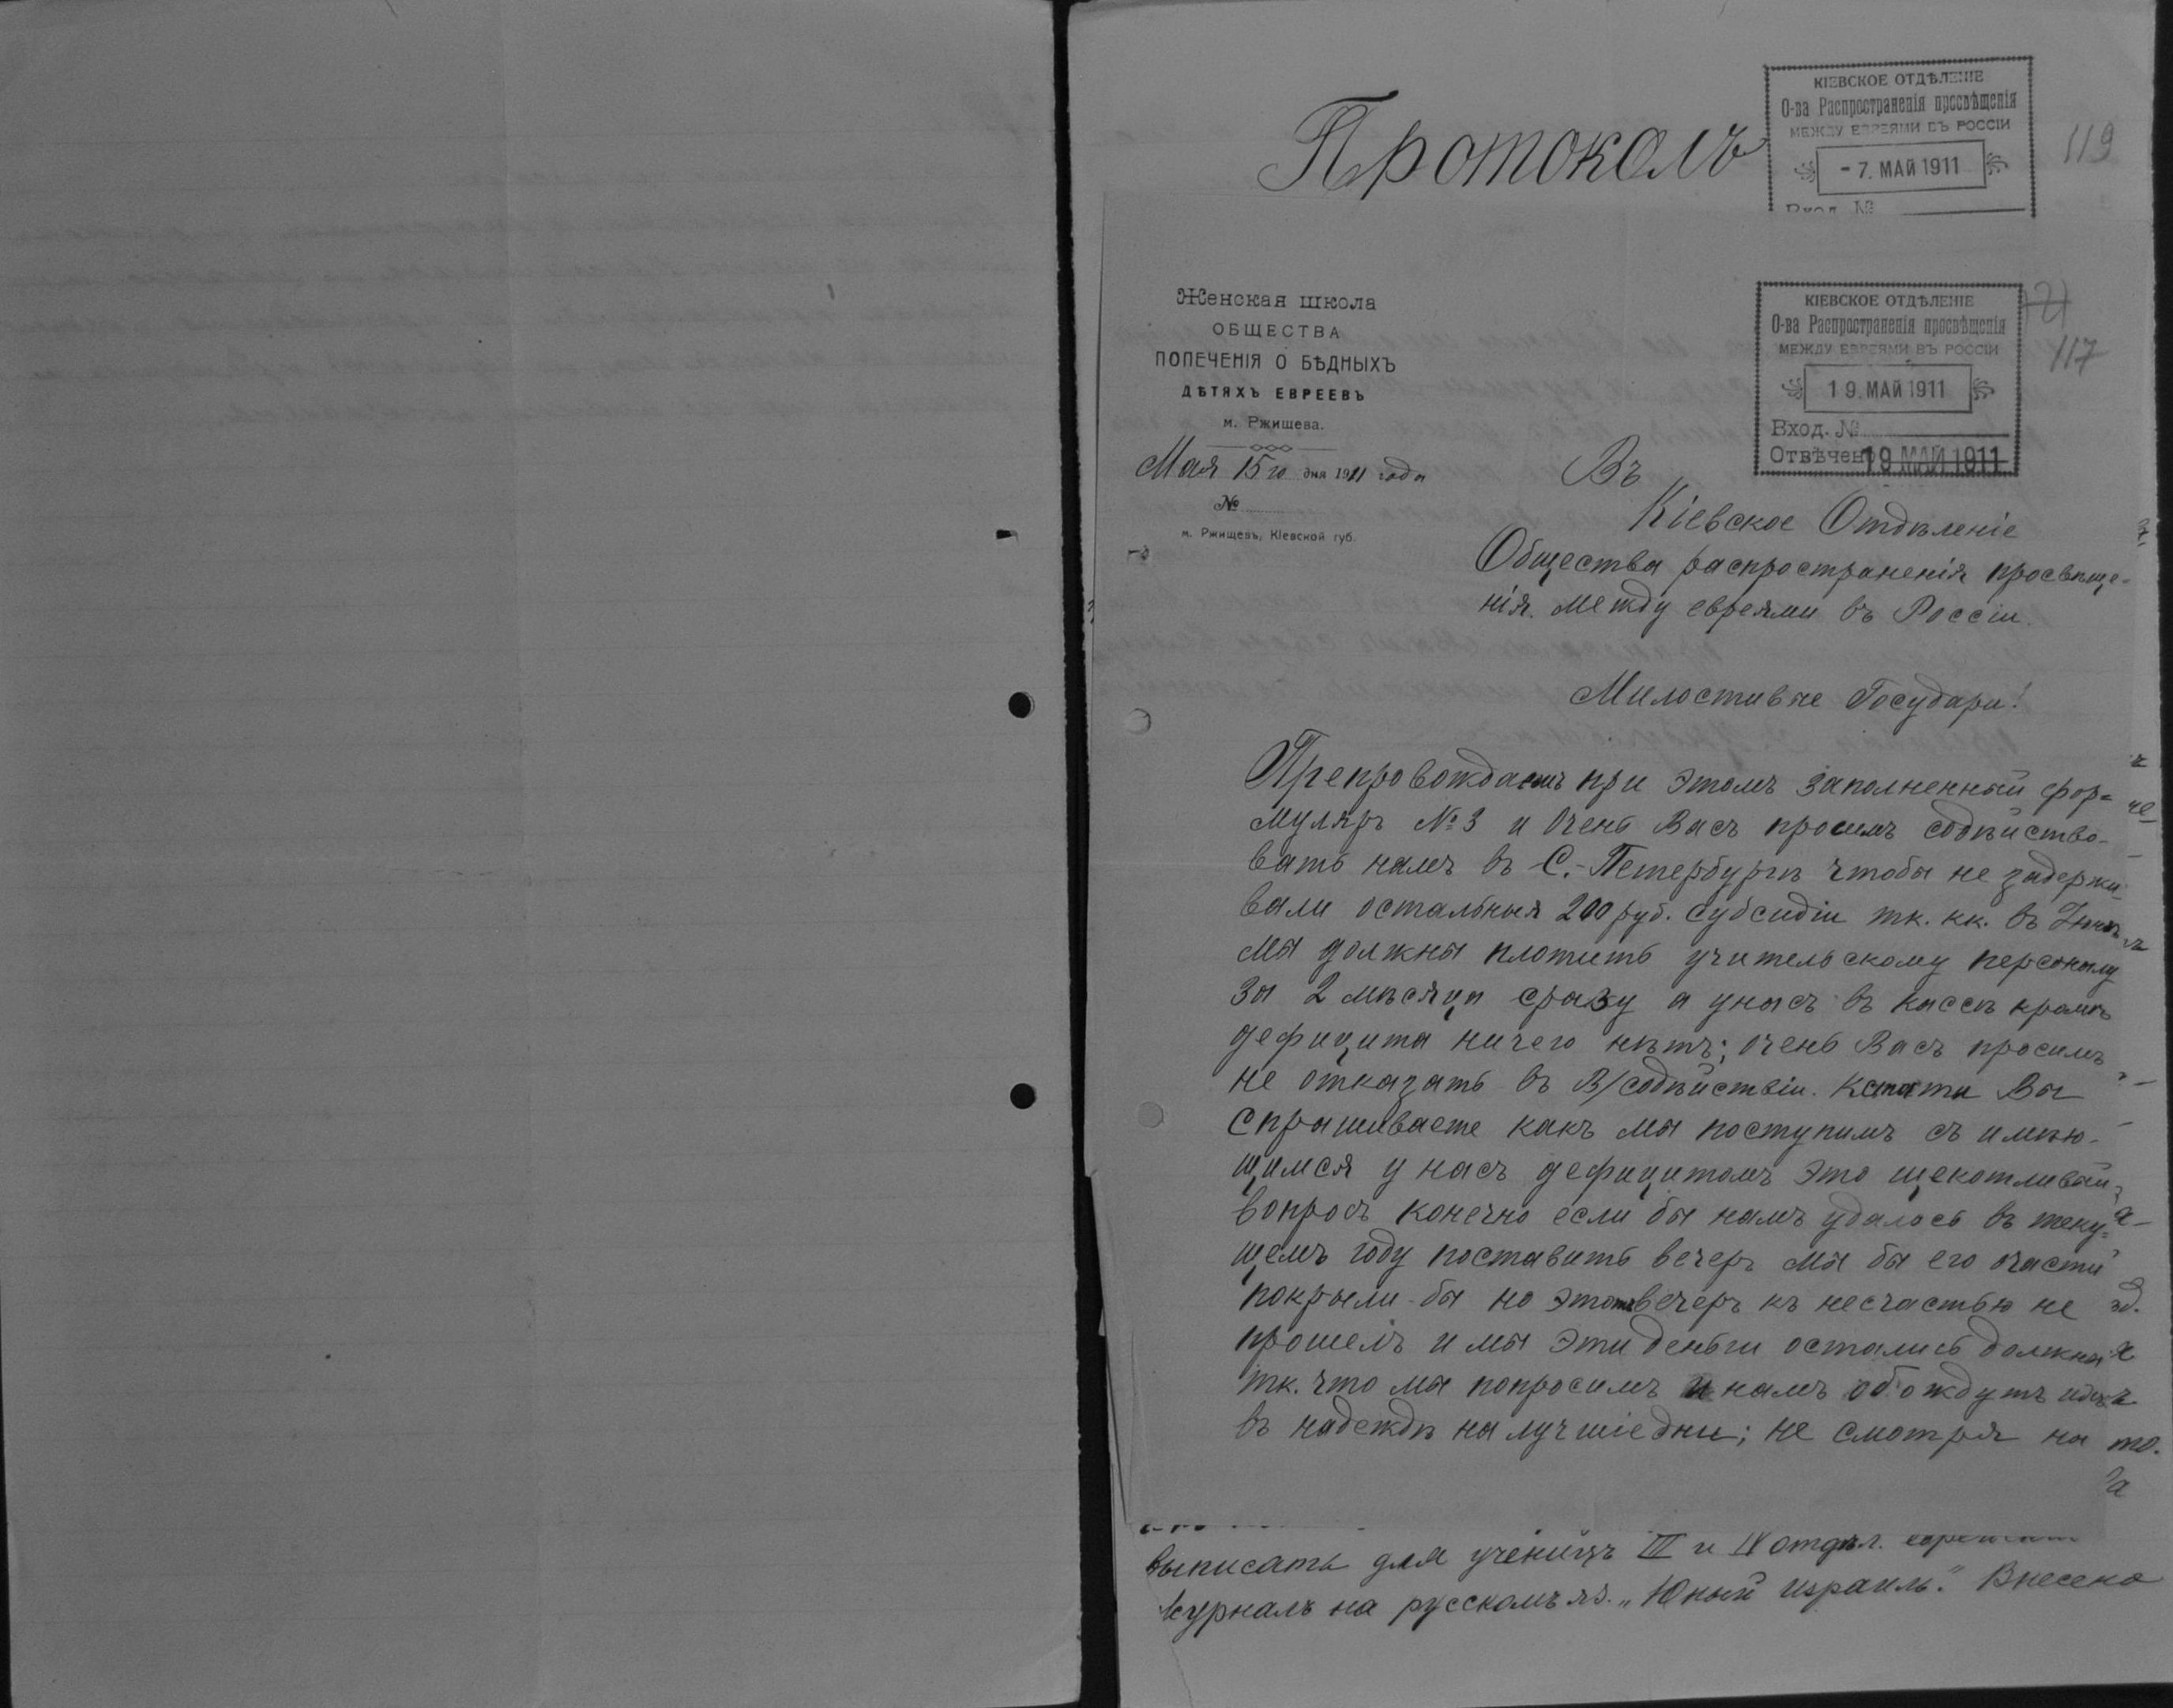 Протоколъ
КІЕВСКОЕ ОТДѢЛЕНІЕ
О-ва Распространенія просвѣщенія
МЕЖДУ ЕВРЕЯМИ ВЪ РОССІИ
- 7. МАЙ 1911
Вход. №
119
Женская школа
ОБЩЕСТВА
ПОПЕЧЕНІЯ О БѢДНЫХЪ
ДѢТЯХЪ ЕВРЕЕВЪ
м. Ржищева.
Мая 15го дня 1911 года
№
м. Ржищевъ, Кіевской губ.
КІЕВСКОЕ ОТДѢЛЕНІЕ
О-ва Распространенія просвѣщенія
МЕЖДУ ЕВРЕЯМИ ВЪ РОССІИ
19. МАЙ 1911
Вход. №
Отвѣчено 19 МАЙ 1911
117
Въ
Кіевское Отдѣленіе
Общества распространенія просвѣще-
нія между евреями въ Россіи.
Милостивые Государи!
Препровождаемъ при этомъ заполненный фор-
муляръ № 3 и очень Васъ просимъ содѣйство-
вать намъ въ С.-Петербургѣ чтобы не задержи-
вали остальныя 200 руб. субсидіи тк. кк. въ Іюнѣ
мы должны плотить учительскому персоналу
за 2 мѣсяца сразу а у насъ въ кассѣ кромѣ
дефицита ничего нѣтъ; очень Васъ просимъ
не отказать въ В/содѣйствіи. Кстати Вы
спрашиваете какъ мы поступимъ съ имѣю-
щимся у насъ дефицитомъ это щекотливый
вопросъ конечно если бы намъ удалось въ теку-
щемъ году поставить вечеръ мы бы его отчасти
покрыли бы но этотъ вечеръ къ несчастью не
прошелъ и мы эти деньги остались должны
тк. что мы попросимъ и намъ обождутъ ихъ
въ надеждѣ на лучшіе дни; не смотря на
то.
выписать для ученицъ III и IV отдѣл.
журналъ на русскомъ яз. „Юный Израиль". Внесено